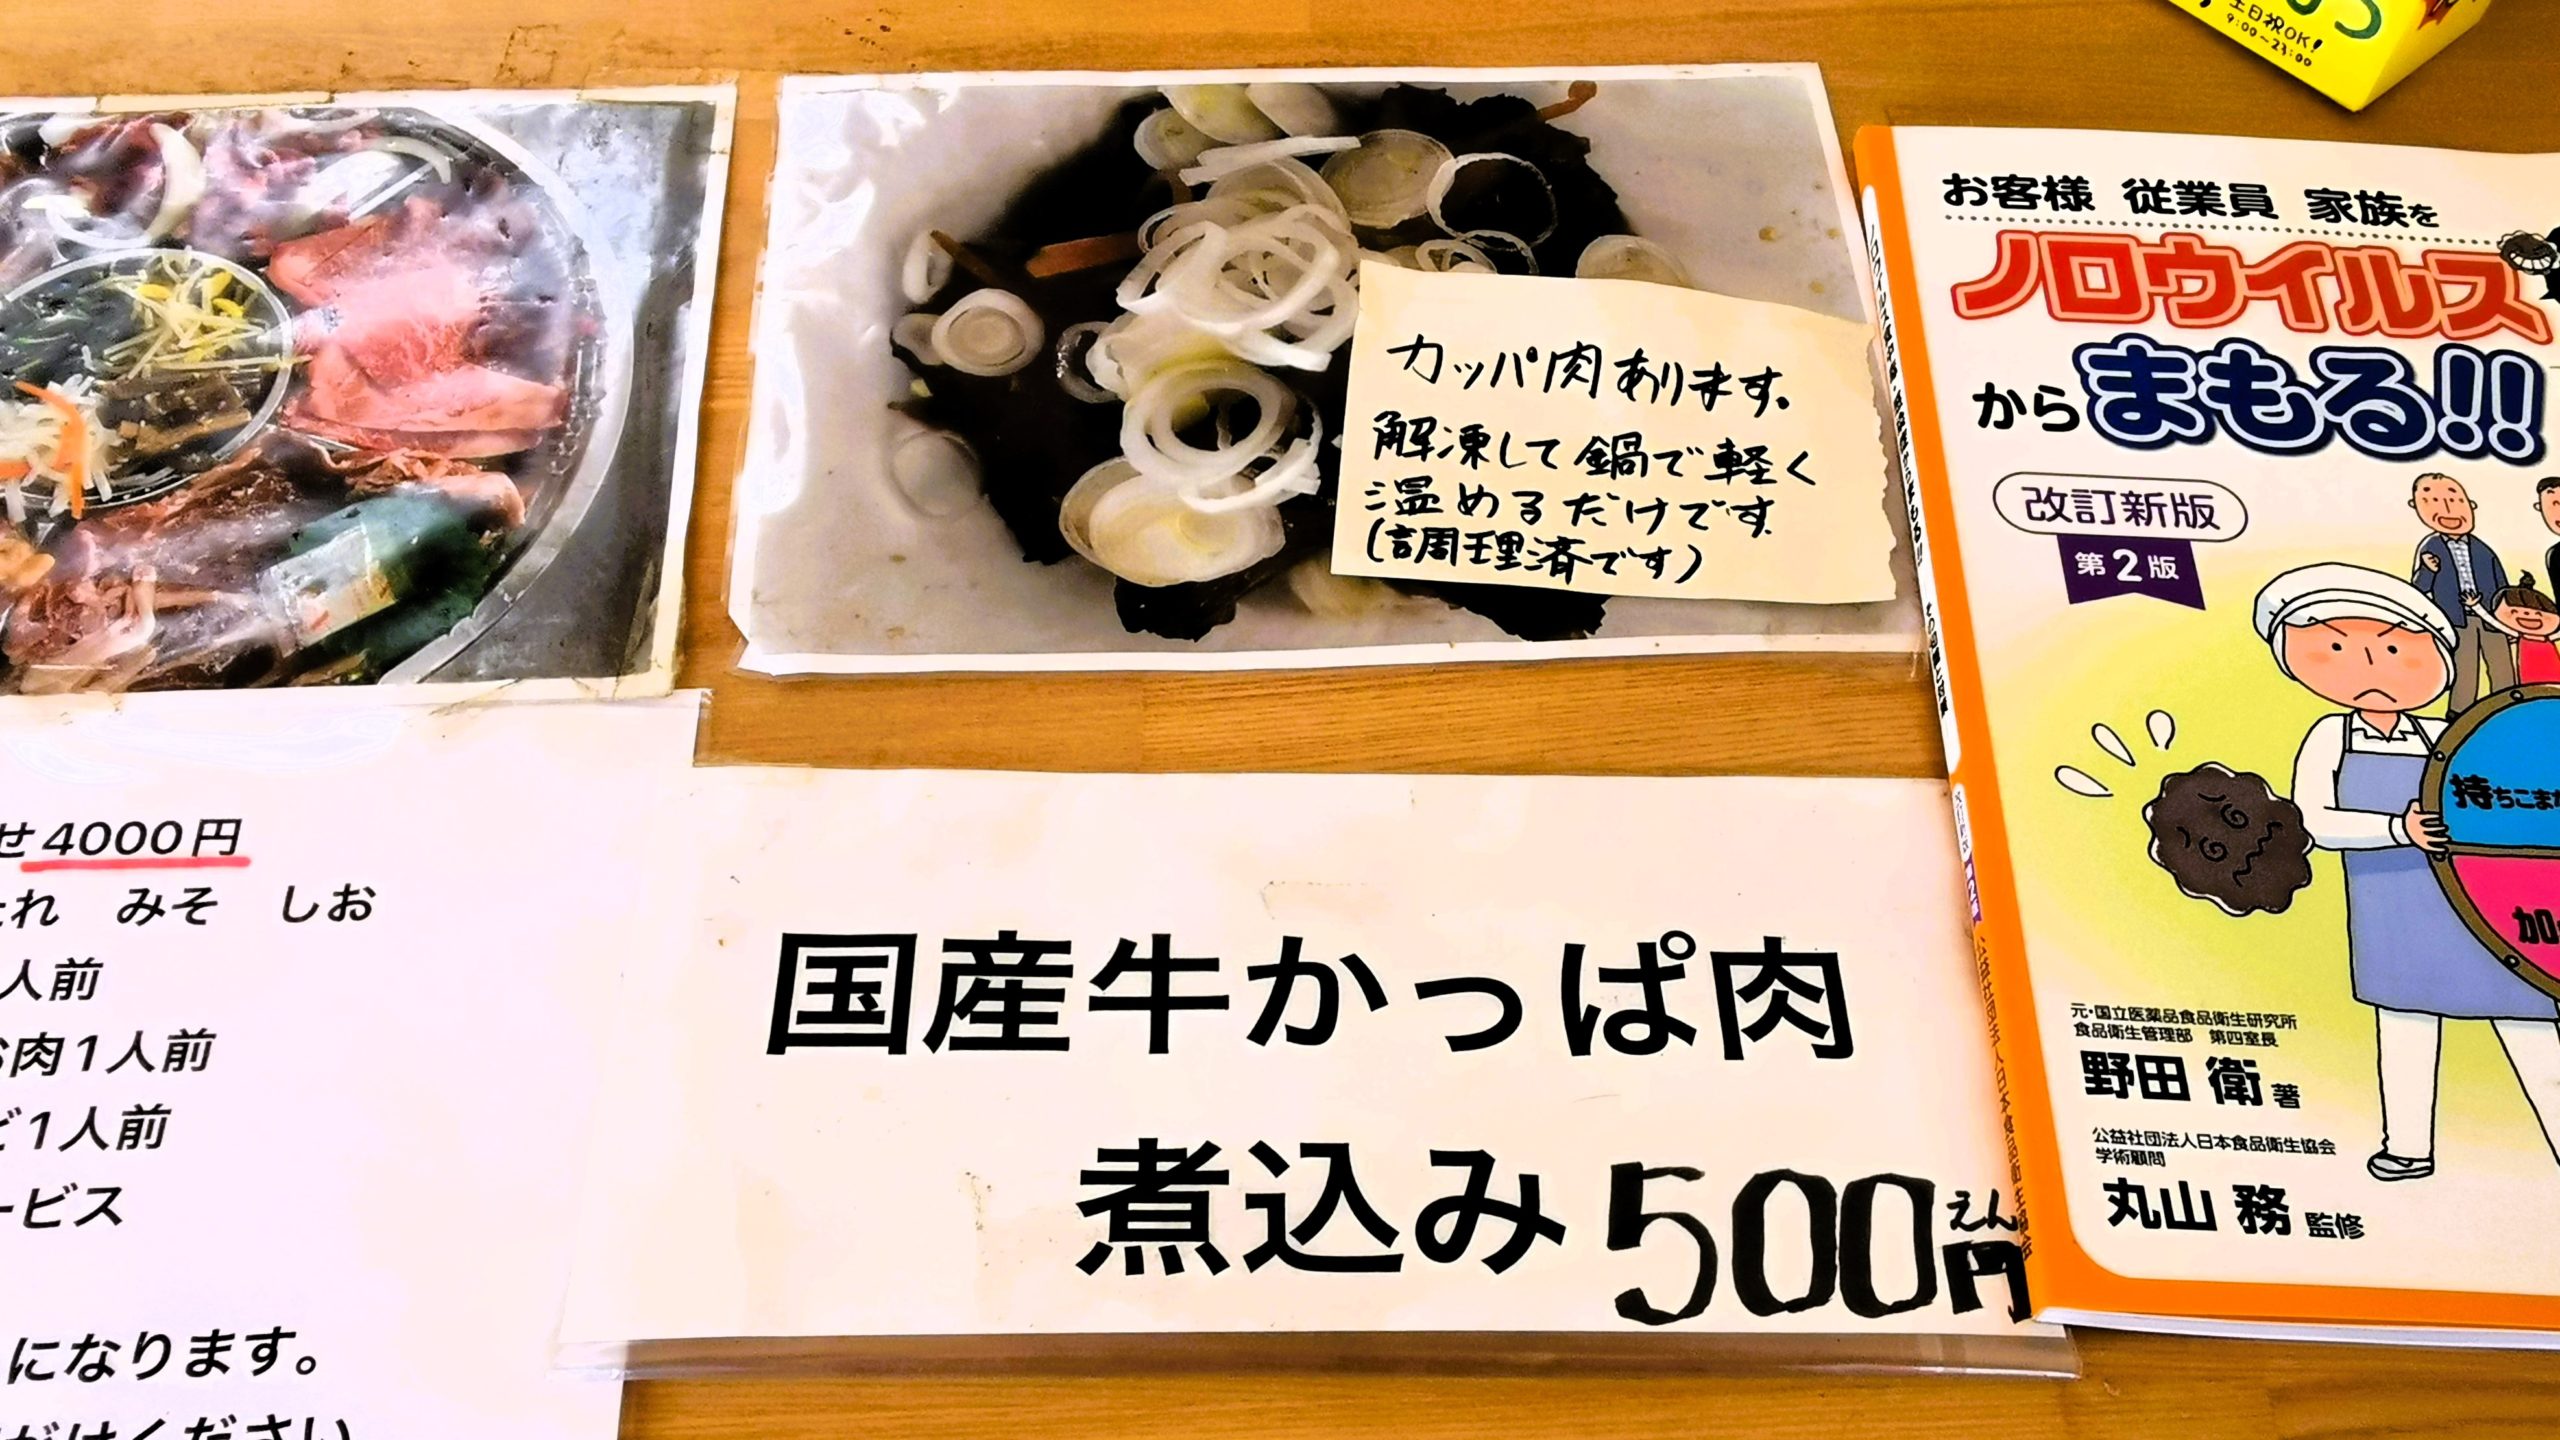 土日祝OK!
9:00~23:00
カッパ肉あります。
解凍して鍋で軽く
温めるだけです
(調理済です)
せ4000円
たれ みそ しお
人前
肉1人前
1人前
ービス
になります。
ください
国産牛かっぱ肉
煮込み500円
えん
お客様 従業員 家族を
ノロウイルス
からまもる!!
改訂新版
第2版
持ちこま
加
元・国立医薬品食品衛生研究所
食品衛生管理部 第四室長
野田 衛 著
公益社団法人日本食品衛生協会
学術顧問
丸山 務 監修